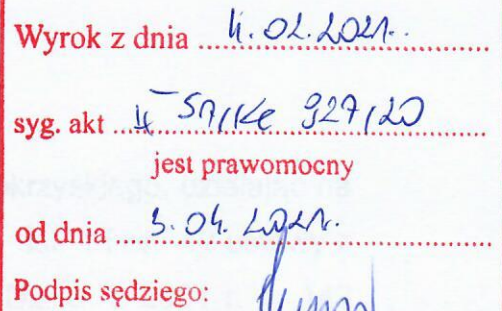 Wyrok z dnia 4.02.2021r.
syg. akt II SA/Ke 927/20
jest prawomocny
od dnia 3.04.2021r.
Podpis sędziego: